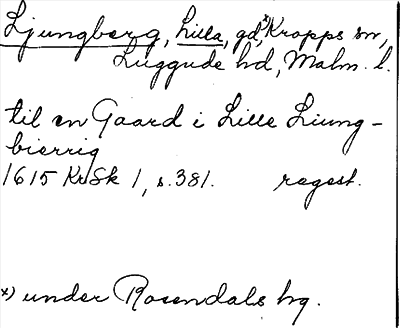 Ljungberg, Lilla, gd,ˣ Kropps sn,
Luggude hd, Malm. l.
til en Gaard i Lille Liung-
bierrig
1615 KrSk 1, s. 381. regest.
x) under Rosendals hg.